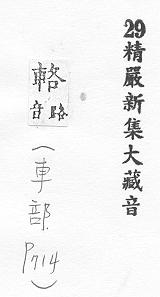 29精嚴新集大藏音
輅
路音
(車部 P714)